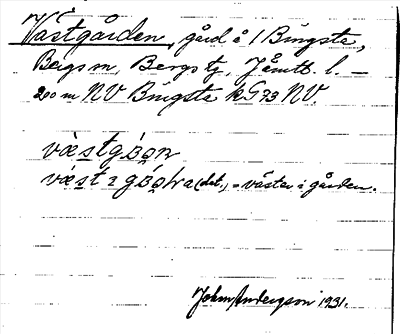 Västgården, gård å / Bingsta,
Bergs sn, Bergs tg, Jämtl. l. –
200 m NV Bingsta kG73 NV.
væstgɔ̀ɔn
væst i gɔ́ɔra (dat.) = väster i gården.
John Andersson 1931.